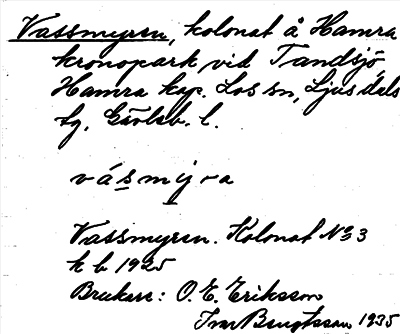 Vassmyren, kolonat å Hamra
kronopark vid Tandsjö,
Hamra kap. Los sn, Ljusdals
tg, Gävleb. l.
vásmyra
Vassmyren. Kolonat No 3
k b 1925
Brukare: O. E. Eriksson
Ivar Bengtsson 1935